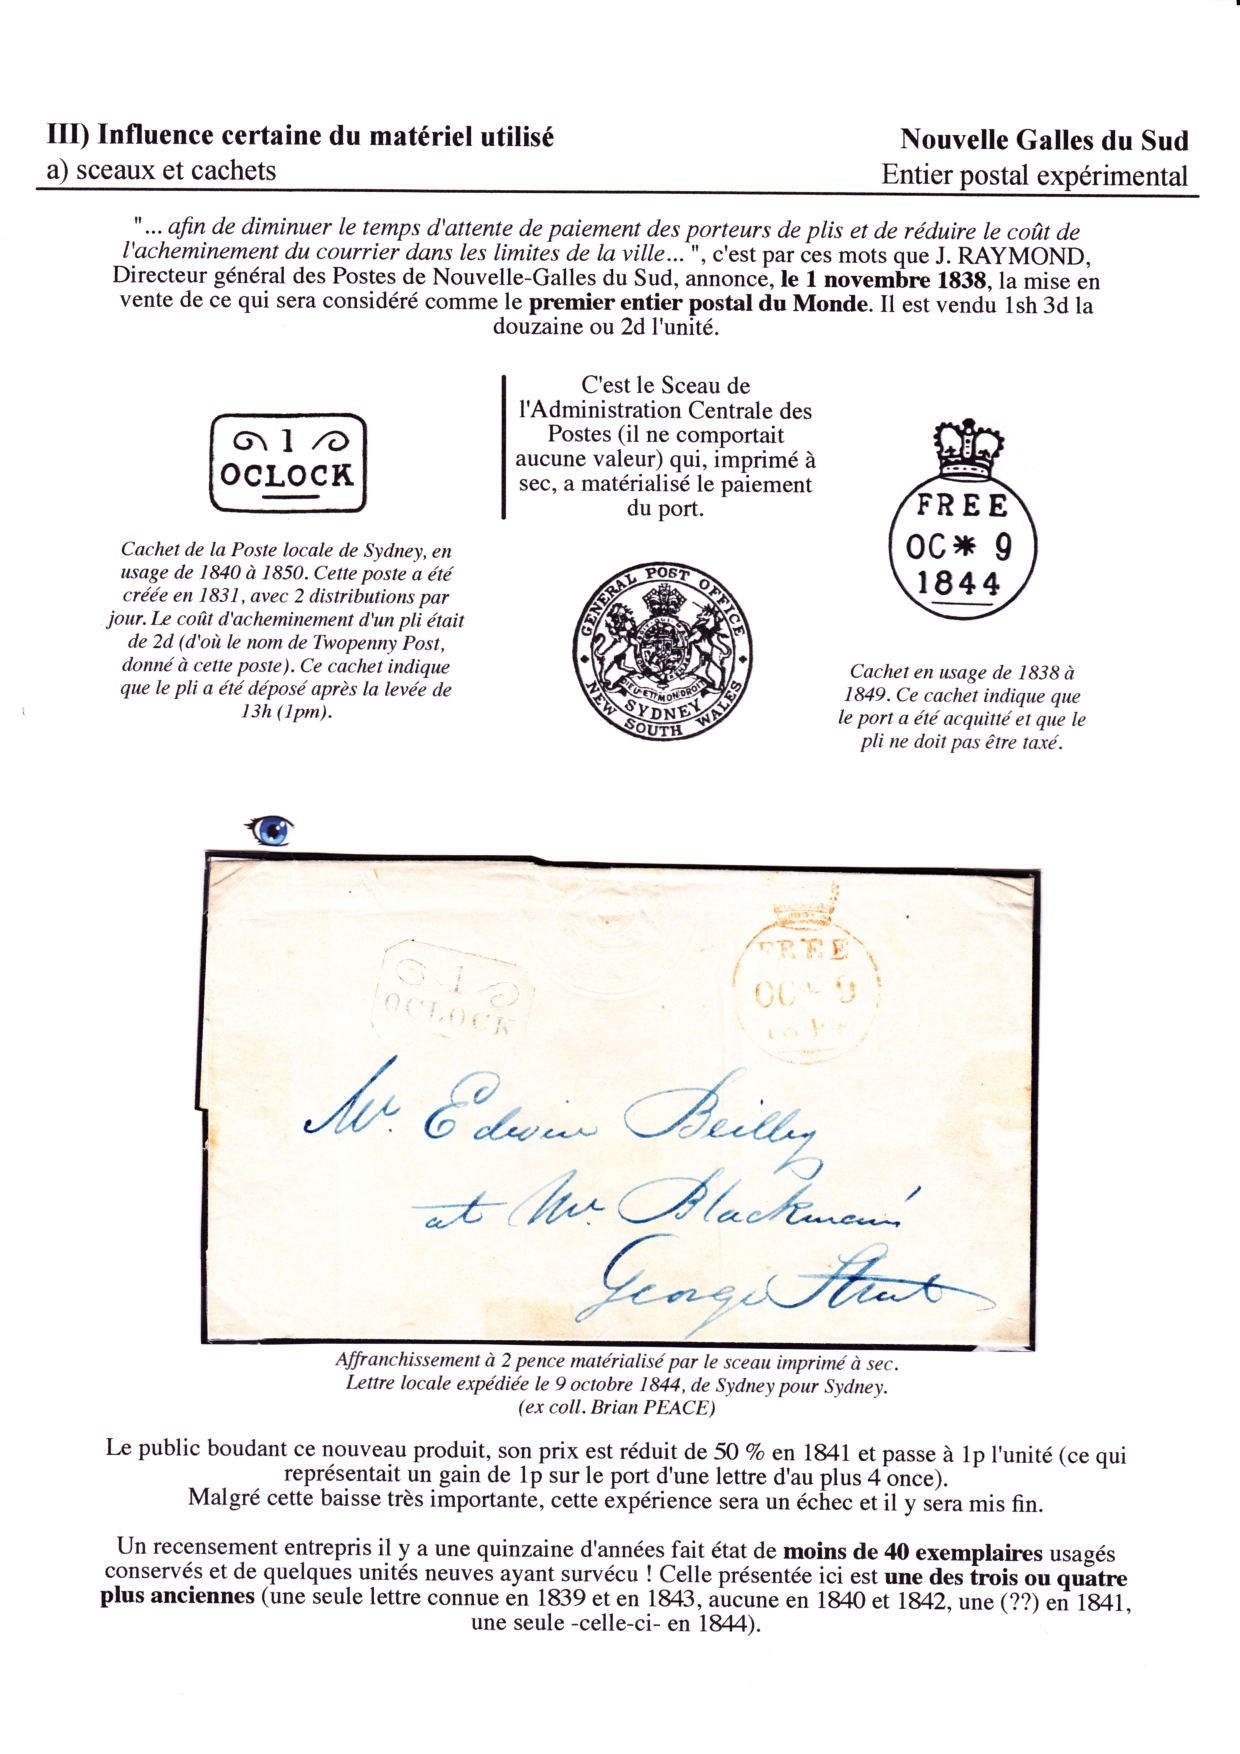 III) Influence certaine du matériel utilisé
a) sceaux et cachets
Nouvelle Galles du Sud
Entier postal expérimental
"... afin de diminuer le temps d'attente de paiement des porteurs de plis et de réduire le coût de
l'acheminement du courrier dans les limites de la ville... ", c'est par ces mots que J. RAYMOND,
Directeur général des Postes de Nouvelle-Galles du Sud, annonce, le 1 novembre 1838, la mise en
vente de ce qui sera considéré comme le premier entier postal du Monde. Il est vendu 1sh 3d la
douzaine ou 2d l'unité.
1
OCLOCK
Cachet de la Poste locale de Sydney, en
usage de 1840 à 1850. Cette poste a été
créée en 1831, avec 2 distributions par
jour. Le coût d'acheminement d'un pli était
de 2d (d'où le nom de Twopenny Post,
donné à cette poste). Ce cachet indique
que le pli a été déposé après la levée de
13h (1pm).
C'est le Sceau de
l'Administration Centrale des
Postes (il ne comportait
aucune valeur) qui, imprimé à
sec, a matérialisé le paiement
du port.
GENERAL POST OFFICE
DIEU ET MON DROIT
SYDNEY
NEW SOUTH WALES
FREE
OC * 9
1844
Cachet en usage de 1838 à
1849. Ce cachet indique que
le port a été acquitté et que le
pli ne doit pas être taxé.
1
OCLOCK
FREE
OC * 9
Mr. Edwin Beilby
at Mr. Blackman's
George Street
Affranchissement à 2 pence matérialisé par le sceau imprimé à sec.
Lettre locale expédiée le 9 octobre 1844, de Sydney pour Sydney.
(ex coll. Brian PEACE)
Le public boudant ce nouveau produit, son prix est réduit de 50 % en 1841 et passe à 1p l'unité (ce qui
représentait un gain de 1p sur le port d'une lettre d'au plus 4 once).
Malgré cette baisse très importante, cette expérience sera un échec et il y sera mis fin.
Un recensement entrepris il y a une quinzaine d'années fait état de moins de 40 exemplaires usagés
conservés et de quelques unités neuves ayant survécu ! Celle présentée ici est une des trois ou quatre
plus anciennes (une seule lettre connue en 1839 et en 1843, aucune en 1840 et 1842, une (??) en 1841,
une seule -celle-ci- en 1844).